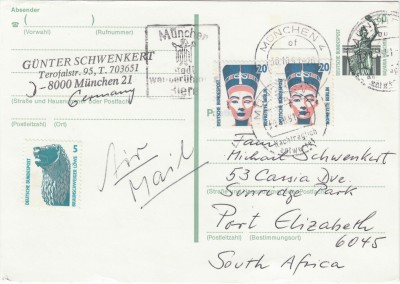 Absender
(Vorwahl) (Rufnummer)
GÜNTER SCHWENKERT
Terofalstr. 95, T. 703651
D-8000 München 21
Germany
(Straße und Hausnummer oder Postfach)
(Postleitzahl) (Ort)
Münchner
MÜNCHEN 4
af
DEUTSCHE BUNDESPOST
20
DEUTSCHE BUNDESPOST
20
DEUTSCHE BUNDESPOST
60
DEUTSCHE BUNDESPOST
BRAUNSCHWEIGER LÖWE
5
Air
Mail
Fam.
Michael Schwenkert
53 Cassia Dve.
Sunridge Park
Port Elizabeth
6045
(Postleitzahl) (Bestimmungsort)
South Africa